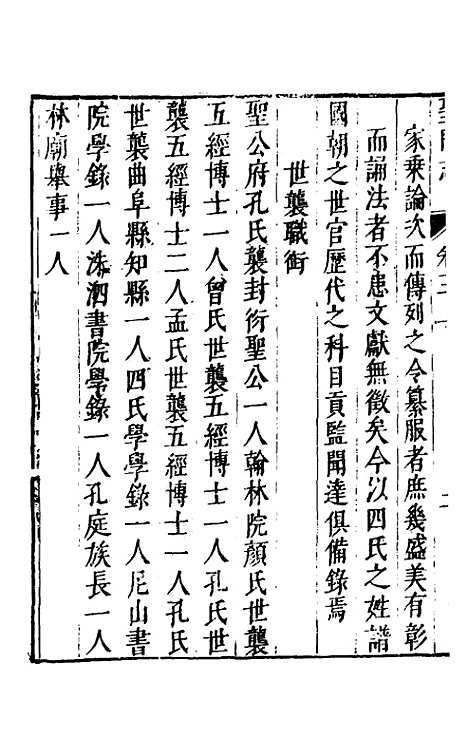 聖門志 卷三 二
家乘論次而傳列之令纂服者庶幾盛美有彰
而誦法者不患文獻無徵矣今以四氏之姓譜
國朝之世官歷代之科目貢監聞達俱備錄焉
世襲職銜
聖公府孔氏襲封衍聖公一人翰林院顏氏世襲
五經博士一人曾氏世襲五經博士一人孔氏世
襲五經博士二人孟氏世襲五經博士一人孔氏
世襲曲阜縣知縣一人四氏學學錄一人尼山書
院學錄一人洙泗書院學錄一人孔庭族長一人
林廟舉事一人